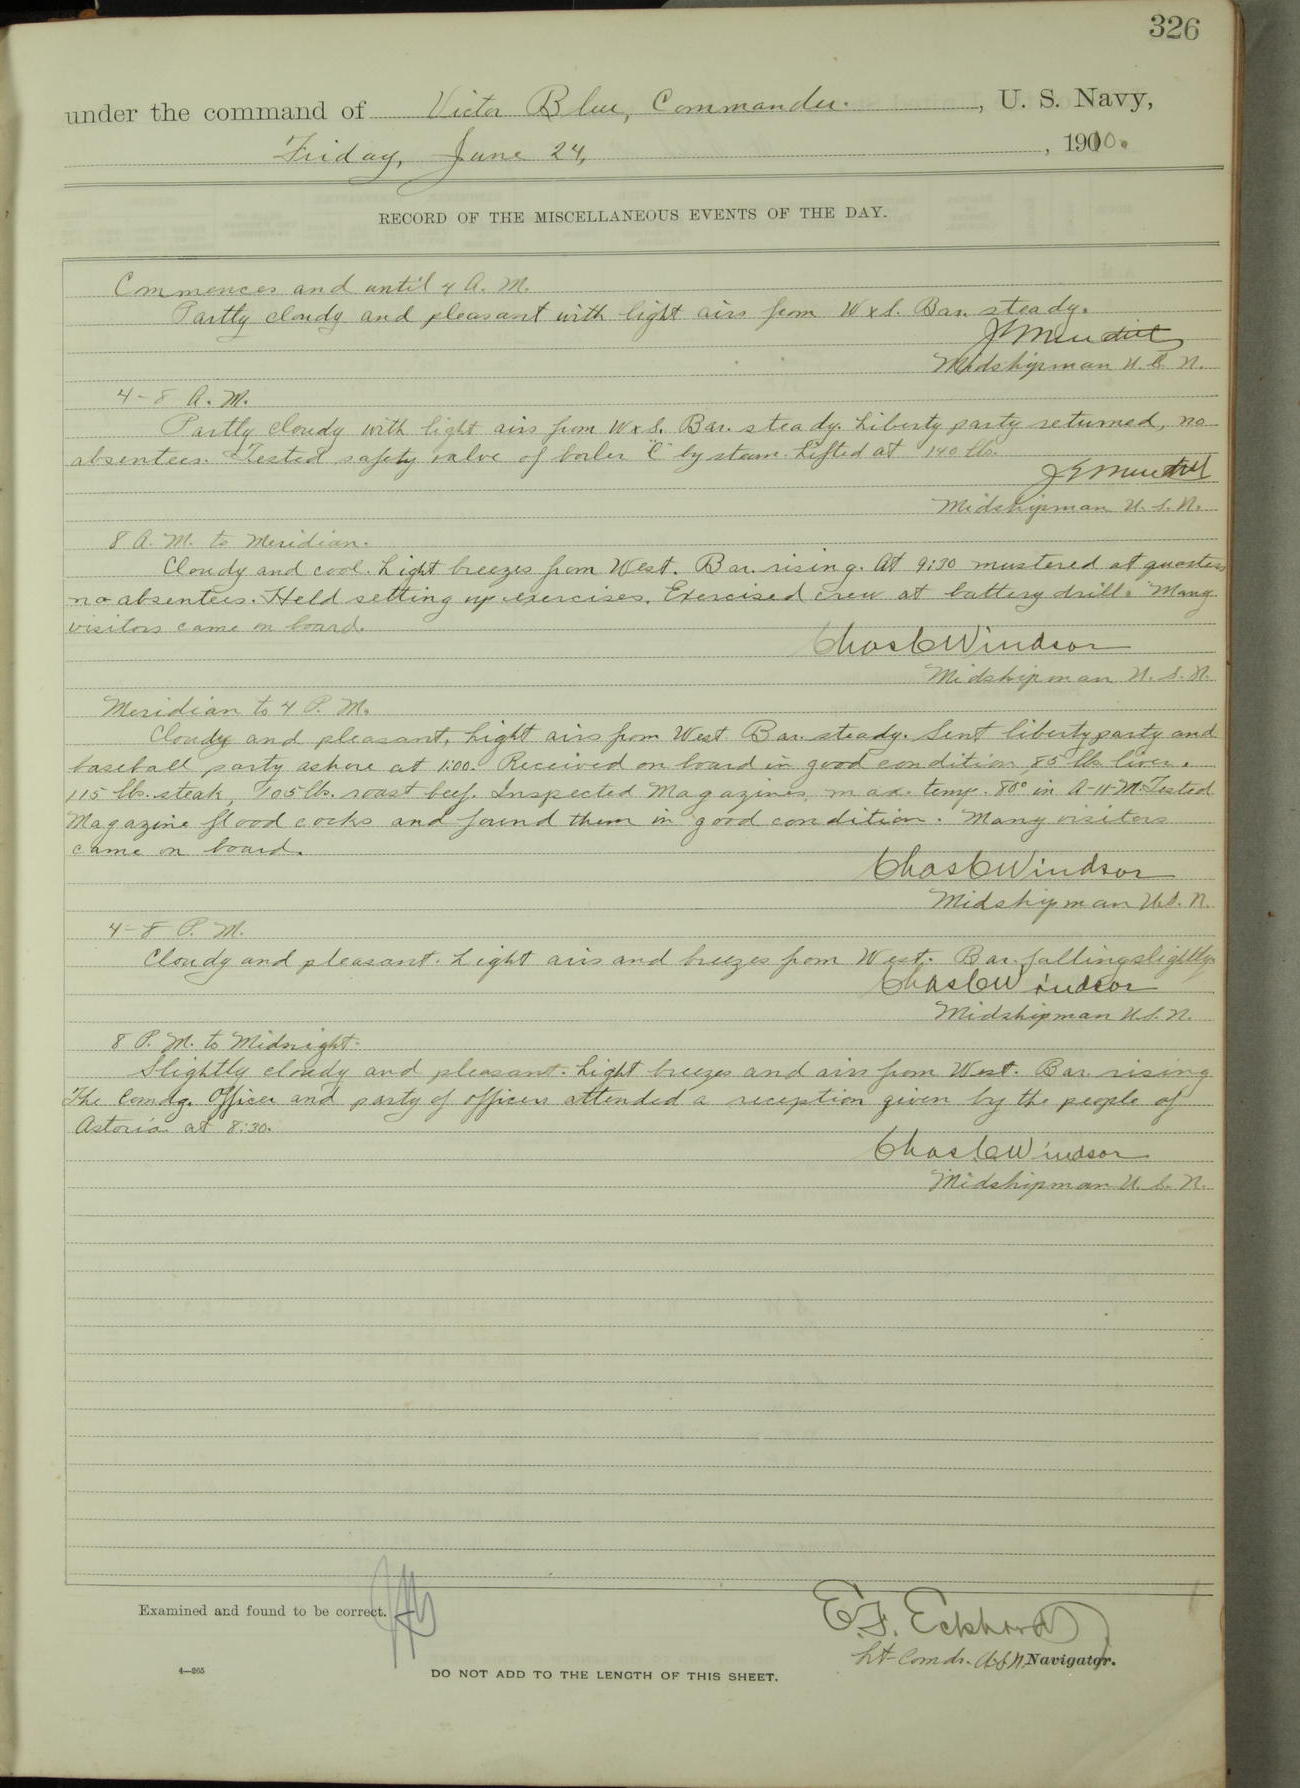 326
under the command of Victor Blue, Commander. , U. S. Navy,
Friday, June 24, , 1910.
RECORD OF THE MISCELLANEOUS EVENTS OF THE DAY.
Commences and until 4 A. M.
Partly cloudy and pleasant with light airs from W x S. Bar. steady.
Midshipman U. S. N.
4-8 A. M.
Partly cloudy with light airs from W x S. Bar. steady. Liberty party returned, no
absentees. Tested safety valve of boiler "C" by steam. Lifted at 140 lbs.
Midshipman U. S. N.
8 A. M. to Meridian.
Cloudy and cool. Light breezes from West. Bar. rising. At 9:30 mustered at quarters
no absentees. Held setting up exercises. Exercised crew at battery drill. Many
visitors came on board.
Chas C Windsor
Midshipman U. S. N.
Meridian to 4 P. M.
Cloudy and pleasant, Light airs from West Bar. steady. Sent liberty party and
baseball party ashore at 1:00. Received on board in good condition, 85 lbs liver,
115 lbs. steak, 105 lbs. roast beef. Inspected Magazines, max. temp. 80° in A-11-M. Tested
Magazine flood cocks and found them in good condition. Many visitors
came on board.
Chas C Windsor
Midshipman U.S. N.
4-8 P. M.
Cloudy and pleasant. Light airs and breezes from West. Bar. falling slightly.
Chas C Windsor
Midshipman U.S. N.
8 P. M. to Midnight.
Slightly cloudy and pleasant. Light breezes and airs from West. Bar. rising
The Comdg. Officer and party of officers attended a reception given by the people of
Astoria at 8:30.
Chas C Windsor
Midshipman U. S. N.
Examined and found to be correct.
E. F. Eckhardt
Lt-Comdr. U.S.N. Navigator.
4—265
DO NOT ADD TO THE LENGTH OF THIS SHEET.